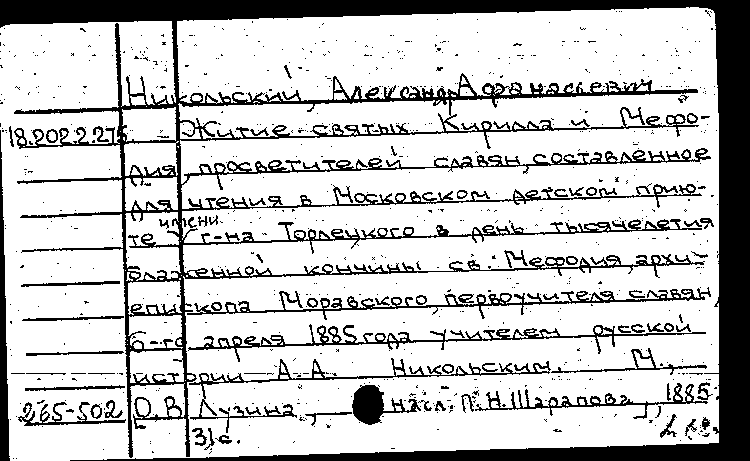 Никольский, Александр Афанасьевич
18.202.2.275 Житие святых Кирилла и Мефо-
дия, просветителей славян, составленное
для чтения в Московском детском прию-
те имени г-на Торлецкого в день тысячелетия
блаженной кончины св. Мефодия, архи-
епископа Моравского, первоучителя славян,
6-го апреля 1885 года учителем русской
истории А.А. Никольским. М.,
265-502 О.В. Лузина, насл. П.Н. Шарапова], 1885.
31 с.